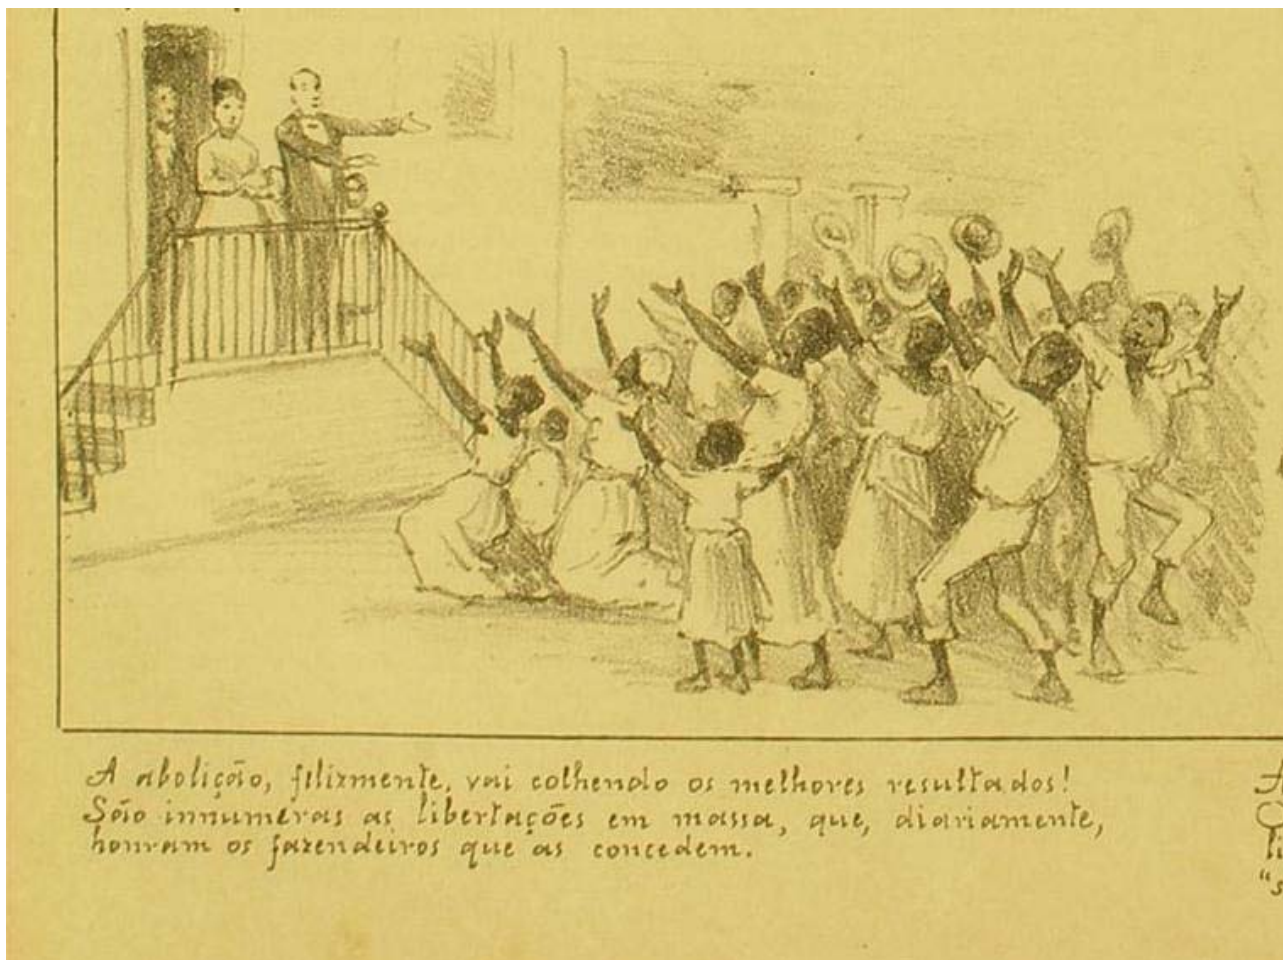 A abolição, filizmente, vai colhendo os melhores resultados!
São innumeras as libertações em massa, que, diariamente,
honram os fazendeiros que as concedem.